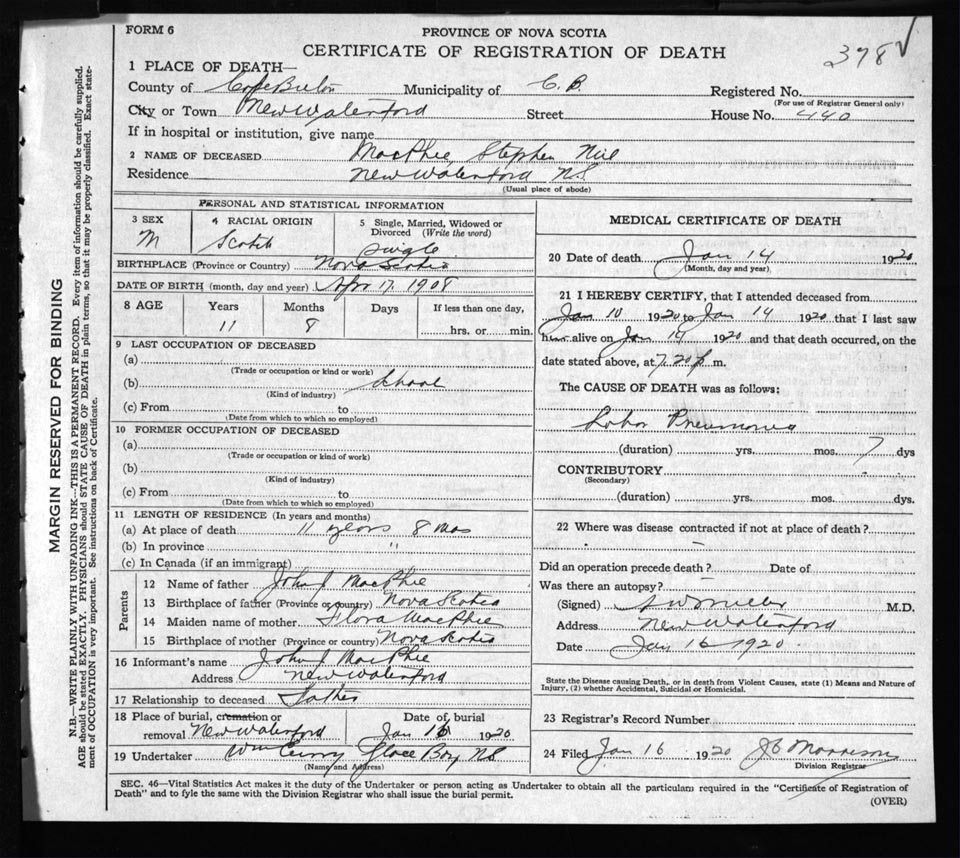 FORM 6
PROVINCE OF NOVA SCOTIA
CERTIFICATE OF REGISTRATION OF DEATH
378 √
1 PLACE OF DEATH—
County of Cape Breton Municipality of C. B. Registered No.
(For use of Registrar General only)
City or Town New Waterford Street House No. 440
If in hospital or institution, give name
2 NAME OF DECEASED MacPhee Stephen Niel
Residence New Waterford N.S.
(Usual place of abode)
PERSONAL AND STATISTICAL INFORMATION
3 SEX 4 RACIAL ORIGIN 5 Single, Married, Widowed or Divorced (Write the word)
M Scotch Single
BIRTHPLACE (Province or Country) Nova Scotia
DATE OF BIRTH (month, day and year) Apr 17 1908
8 AGE Years Months Days If less than one day,
11 8 hrs. or min.
9 LAST OCCUPATION OF DECEASED
(a)
(Trade or occupation or kind or work)
(b) School
(Kind of industry)
(c) From to
(Date from which to which so employed)
10 FORMER OCCUPATION OF DECEASED
(a)
(Trade or occupation or kind of work)
(b)
(Kind of industry)
(c) From to
(Date from which to which so employed)
11 LENGTH OF RESIDENCE (In years and months)
(a) At place of death 11 years 8 mos
(b) In province "
(c) In Canada (if an immigrant)
Parents
12 Name of father John J MacPhee
13 Birthplace of father (Province or country) Nova Scotia
14 Maiden name of mother Flora MacPhee
15 Birthplace of mother (Province or country) Nova Scotia
16 Informant's name John J MacPhee
Address New Waterford
17 Relationship to deceased Father
18 Place of burial, cremation or removal New Waterford Date of burial Jan 16 1920
19 Undertaker Wm Curry Glace Bay N.S.
(Name and Address)
MEDICAL CERTIFICATE OF DEATH
20 Date of death Jan 14 1920
(Month, day and year)
21 I HEREBY CERTIFY, that I attended deceased from
Jan 10 1920 to Jan 14 1920 that I last saw
him alive on Jan 14 1920 and that death occurred, on the
date stated above, at 7.20 p m.
The CAUSE OF DEATH was as follows:
Lobar Pneumonia
(duration) yrs. mos. 7 dys
CONTRIBUTORY
(Secondary)
(duration) yrs. mos. dys.
22 Where was disease contracted if not at place of death?
Did an operation precede death? Date of
Was there an autopsy?
(Signed) M.D.
Address New Waterford
Date Jan 16 1920
State the Disease causing Death, or in death from Violent Causes, state (1) Means and Nature of
Injury, (2) whether Accidental, Suicidal or Homicidal.
23 Registrar's Record Number
24 Filed Jan 16 1920 Morrison
Division Registrar
SEC. 46—Vital Statistics Act makes it the duty of the Undertaker or person acting as Undertaker to obtain all the particulars required in the "Certificate of Registration of
Death" and to fyle the same with the Division Registrar who shall issue the burial permit.
(OVER)
MARGIN RESERVED FOR BINDING
N.B.—WRITE PLAINLY WITH UNFADING INK—THIS IS A PERMANENT RECORD. Every item of information should be carefully supplied.
AGE should be stated EXACTLY. PHYSICIANS should STATE CAUSE OF DEATH in plain terms, so that it may be properly classified. Exact state-
ment of OCCUPATION is very important. See instructions on back of Certificate.